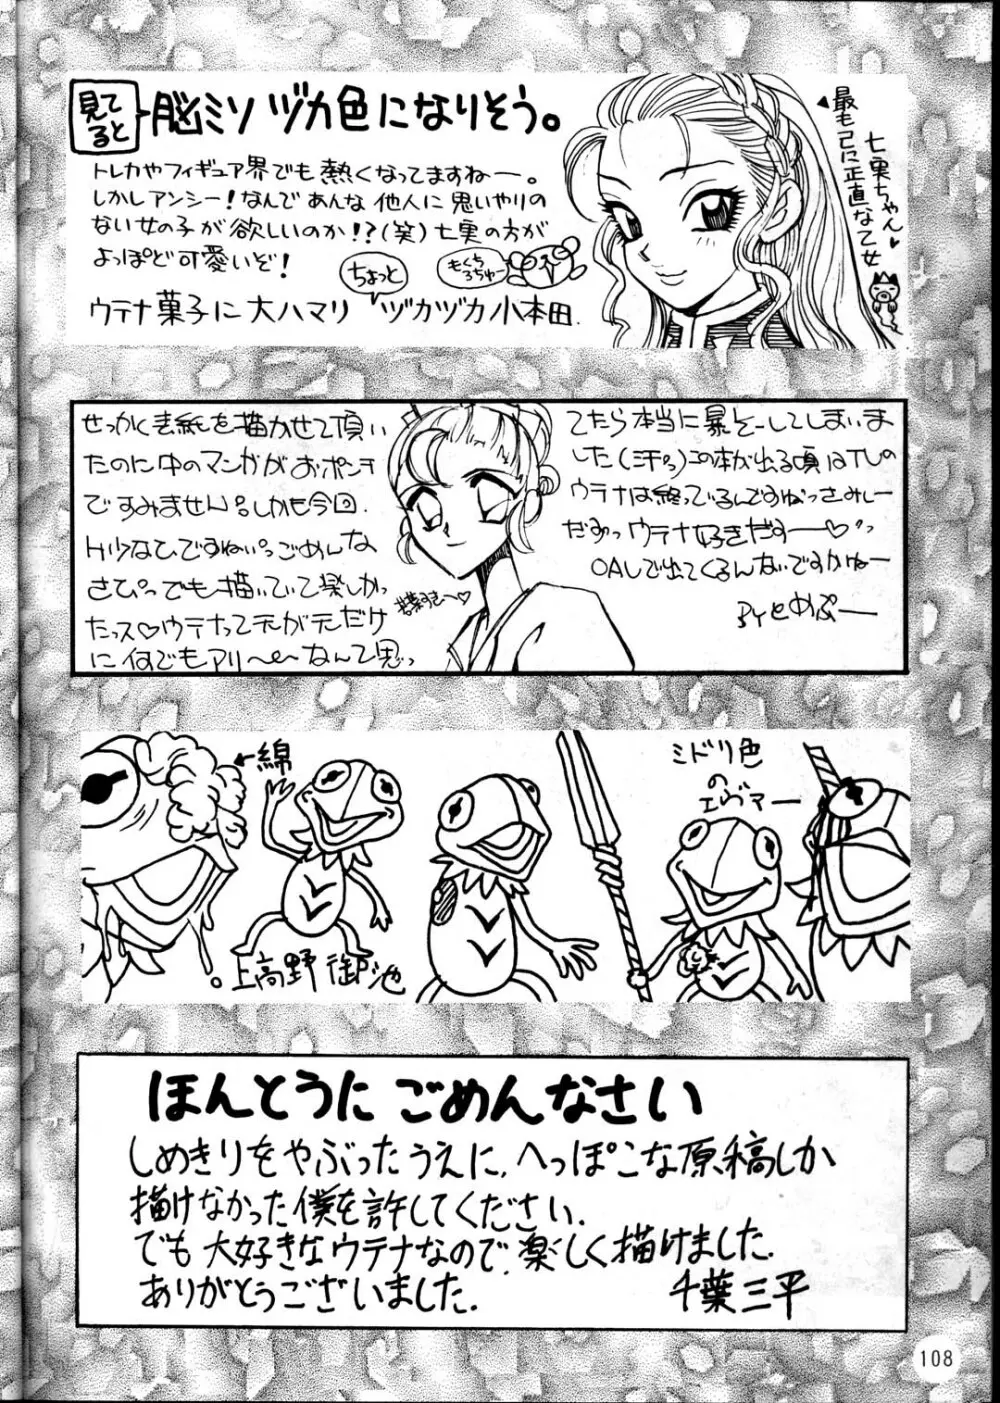 見てると
脳ミソ ヅカ色になりそう。
トレカやフィギュア界でも熱くなってますねー。
しかしアンシー!なんであんな他人に思いやりの
ない女の子が欲しいのか!?(笑)七実の方が
よっぽど可愛いぞ!
ちょっと
もくちろちゅー
ウテナ菓子に大ハマリ ヅカヅカ小本田.
七実ちゃん♥
▲最も己に正直な乙女
せっかく表紙を描かせて頂い
たのに中のマンガがおポンチ
ですみません。しかも今回
H少なひですねぃっごめんな
さひっでも描いていて楽しかっ
たっス♡ウテナって元が元だけ
に何でもアリ〜〜なんて思っ
てたら本当に暴そーしてしまいま
した(汗っ)この本が出る頃はTVの
ウテナは終っているんですねっさみしー
だすっウテナ好きだすー♡っ
OAVで出てくるんないですかねー
BYとめぷー
←綿
上高野御池
ミドリ色
の
エヴァー
ほんとうに ごめんなさい
しめきりをやぶったうえに、へっぽこな原稿しか
描けなかった僕を許してください.
でも大好きなウテナなので、楽しく描けました.
ありがとうございました.
千葉三平
108